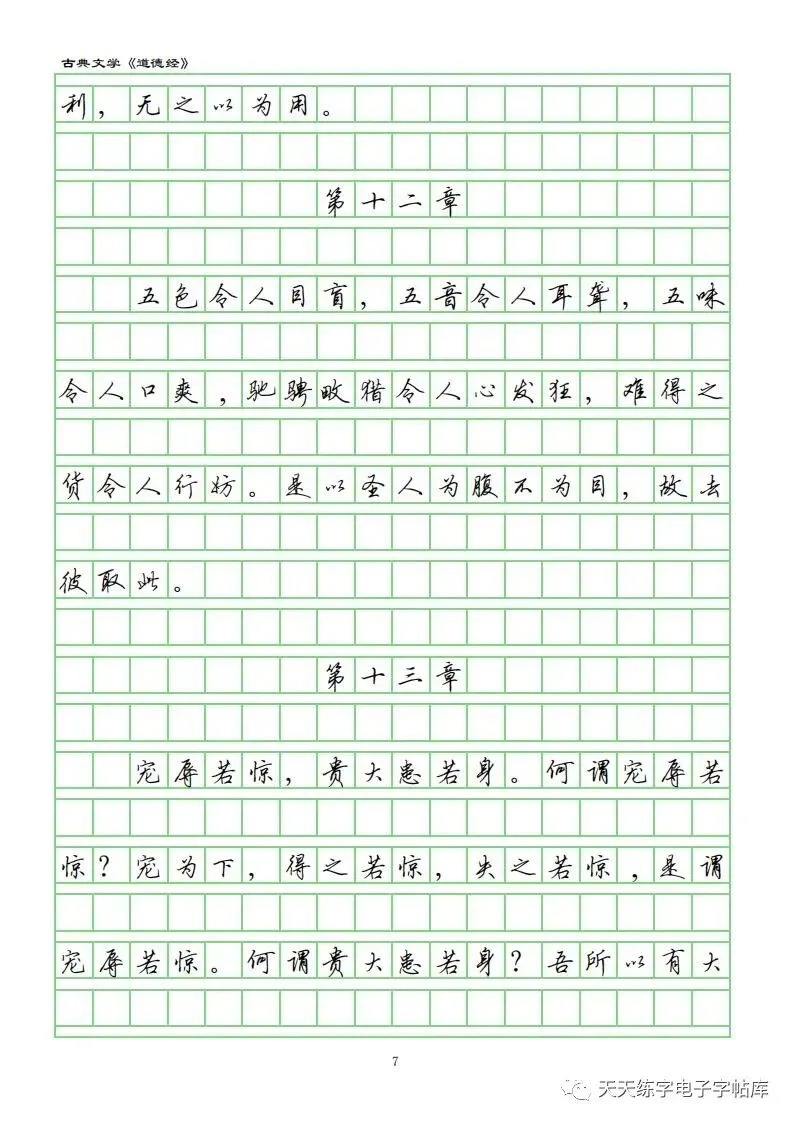 古典文学《道德经》
利，无之以为用。
第十二章
五色令人目盲，五音令人耳聋，五味
令人口爽，驰骋畋猎令人心发狂，难得之
货令人行妨。是以圣人为腹不为目，故去
彼取此。
第十三章
宠辱若惊，贵大患若身。何谓宠辱若
惊？宠为下，得之若惊，失之若惊，是谓
宠辱若惊。何谓贵大患若身？吾所以有大
7
天天练字电子字帖库